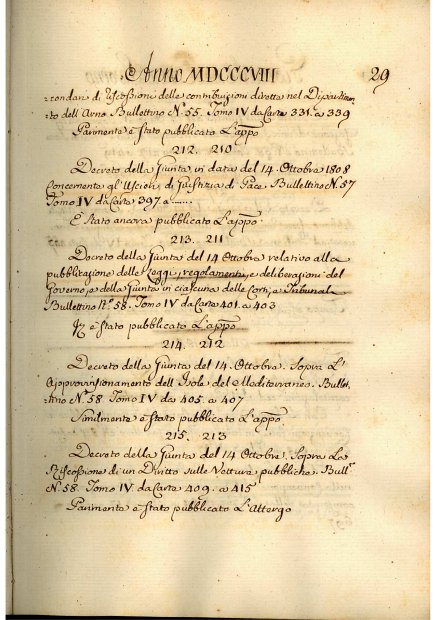 Anno MDCCCVIII 29
:condari di Riscossioni delle contribuzioni dirette nel Dipartimen:
:to dell'Arno Bullettino N.º 55. Tomo IV da Carte 331. a 339
Parimente è stato pubblicato L'appº
212. 210
Decreto della Giunta in data del 14. Ottobre 1808
Concernente gl'Uscieri di Giustizia di Pace. Bullettino N.º 57
Tomo IV da Carte 397 a ......
E stato ancora pubblicato L'appº
213. 211
Decreto della Giunta del 14 Ottobre relativo alla
pubblicazione delle Leggi, regolamenti, e deliberazioni del
Governo, e della Giunta in ciascuna delle Corti, e Tribunali
Bullettino N.º 58. Tomo IV da Carte 401. a 403
è stato pubblicato L'appº
214. 212
Decreto della Giunta del 14. Ottobre. Sopra L'
Approvvisionamento dell'Isole del Mediterraneo. Bullet:
:tino N.º 58 Tomo IV da 405. a 407
Similmente è stato pubblicato L'appº
215. 213
Decreto della Giunta del 14 Ottobre. Sopra La
Riscossione di un Diritto sulle Vetture pubbliche. Bull.º
N.º 58. Tomo IV da Carte 409. a 415
Parimente è stato pubblicato L'Attergo